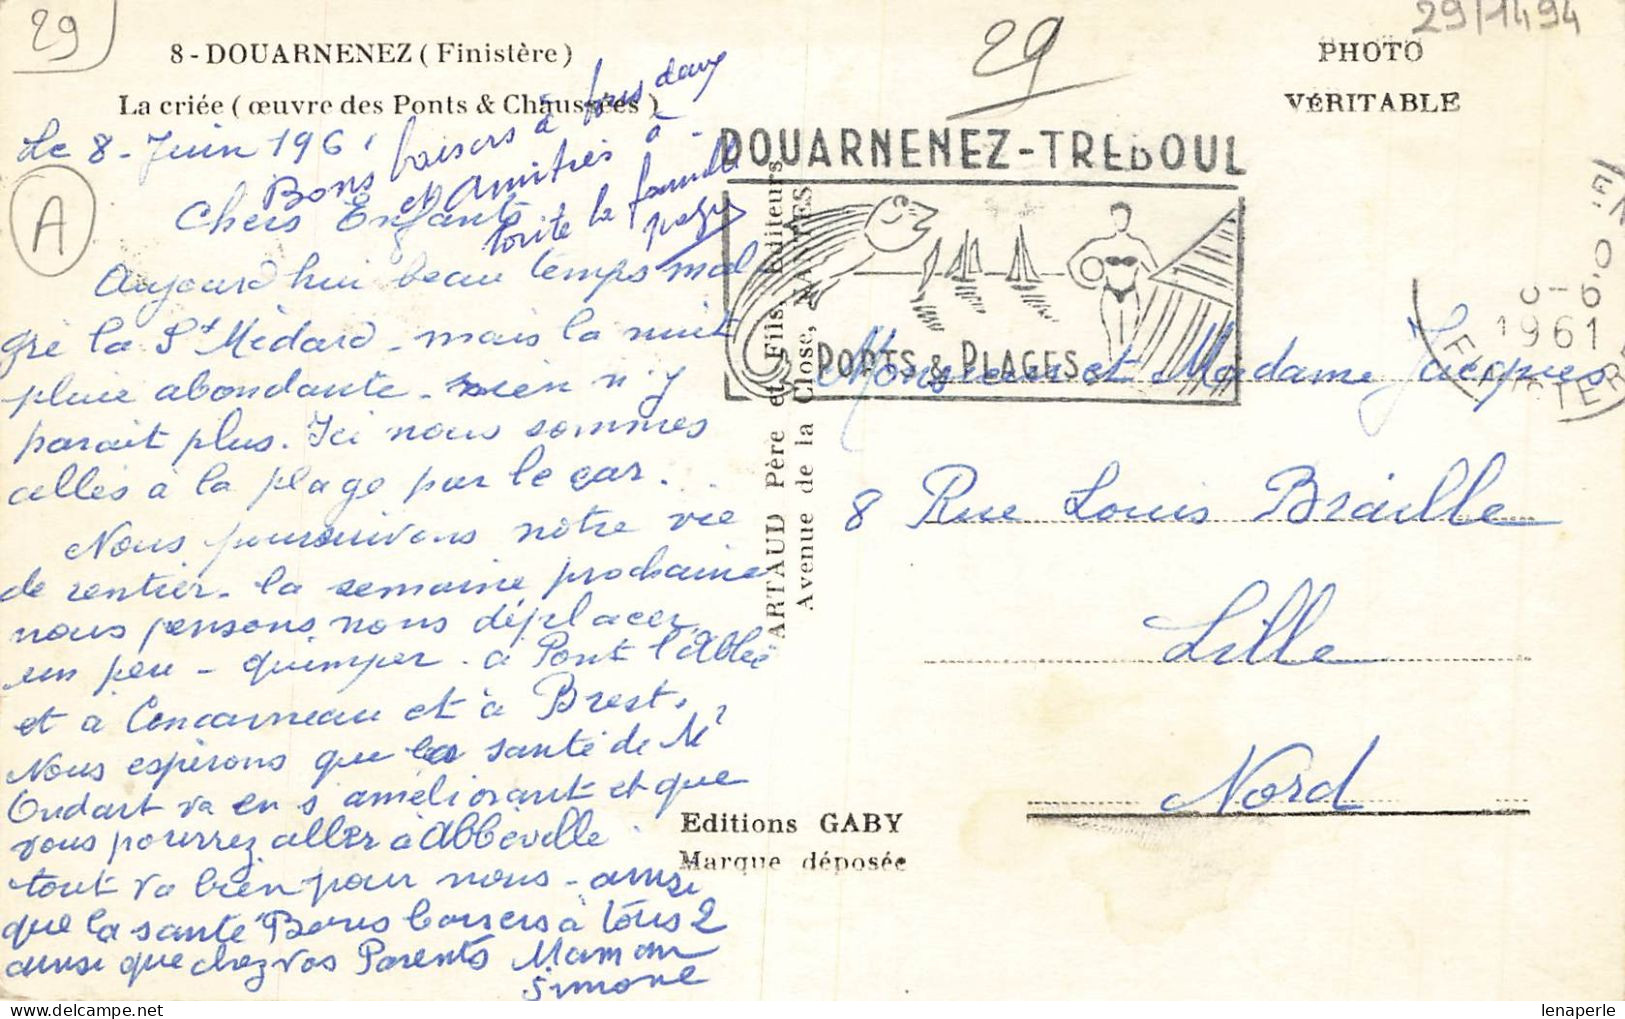 29
29
29/1494
8 - DOUARNENEZ ( Finistère )
La criée ( œuvre des Ponts & Chaussées )
PHOTO
VÉRITABLE
A
Le 8 - Juin 1961
Bons baisers à tous deux
et Amitiés à
toute la famille
Chers Enfants
Aujourd hui beau temps mal-
gré la St Médard - mais la nuit
pluie abondante - rien n'y
parait plus. Ici nous sommes
allés à la plage par le car . . .
Nous poursuivons notre vie
de rentier - la semaine prochaine
nous pensons nous déplacer
un peu - quimper - à Pont l'Abbé
et à Concarneau et à Brest.
Nous espérons que la santé de Mr
Oudart va en s'améliorant et que
vous pourrez aller à Abbeville
tout va bien pour nous - ainsi
que la santé Bons baisers à tous 2
ainsi que chez vos Parents Maman
Simone
DOUARNENEZ-TREBOUL
PORTS & PLAGES
1961
FINISTERE
ARTAUD Père et Fils, Editeurs
Avenue de la Close, NANTES
Monsieur et Madame Jacques
8 Rue Louis Braille
Lille
Nord
Editions GABY
Marque déposée
lenaperle